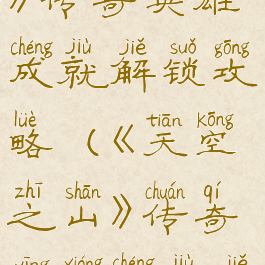 》传奇英雄
chéng jiù jiě suǒ gōng
成就解锁攻
lüè tiān kōng
略（《天空
zhī shān chuán qí
之山》传奇
yīng xióng chéng jiù jiě